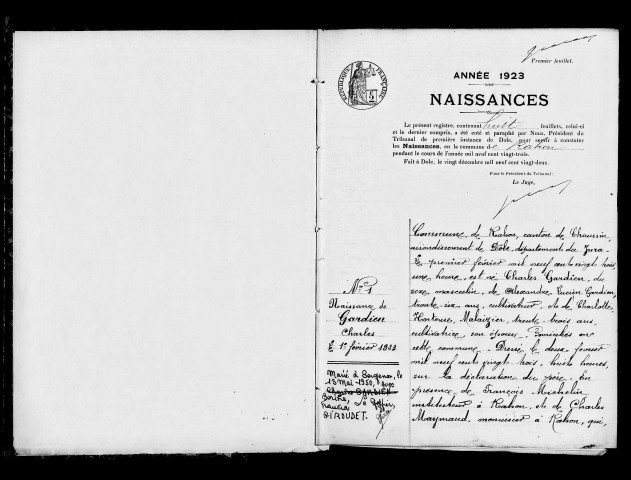 Premier feuillet.
RÉPUBLIQUE FRANÇAISE
ANNÉE 1923
NAISSANCES
Le présent registre, contenant huit feuillets, celui-ci
et le dernier compris, a été coté et paraphé par Nous, Président du
Tribunal de première instance de Dole, pour servir à constater
les Naissances, en la commune de Rahon
pendant le cours de l'année mil neuf cent vingt-trois.
Fait à Dole, le vingt décembre mil neuf cent vingt-deux.
Pour le Président du Tribunal :
Le Juge,
N° 1
Naissance de
Gardien
Charles
1er février 1923
Marié à Sergenon, le
13 Mai 1950, avec
Giroudet.
Commune de Rahon, canton de Chaussin
arrondissement de Dôle, département du Jura
Le premier février mil neuf cent vingt trois
une heure, est né Charles Gardien, de
sexe masculin, de Alexandre Lucien Gardien,
trente six ans, cultivateur, et de Charlotte
Hortense, trente-trois ans,
cultivatrice, son épouse, domiciliés en
cette commune. Dressé le deux février
mil neuf cent vingt-trois, huit heures,
sur la déclaration du père, en
présence de François Michelin
instituteur à Rahon, et de Charles
Maymaud, menuisier à Rahon, qui,